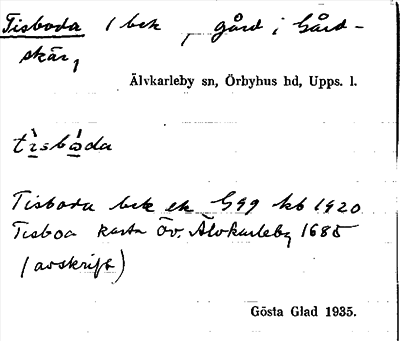 Tisboda / bek, gård i Gård-
skär,
Älvkarleby sn, Örbyhus hd, Upps. l.
tìsbòda
Tisboda bek ek G99 kb 1920
Tisboa karta Öv. Älvkarleby 1685
(avskrift)
Gösta Glad 1935.